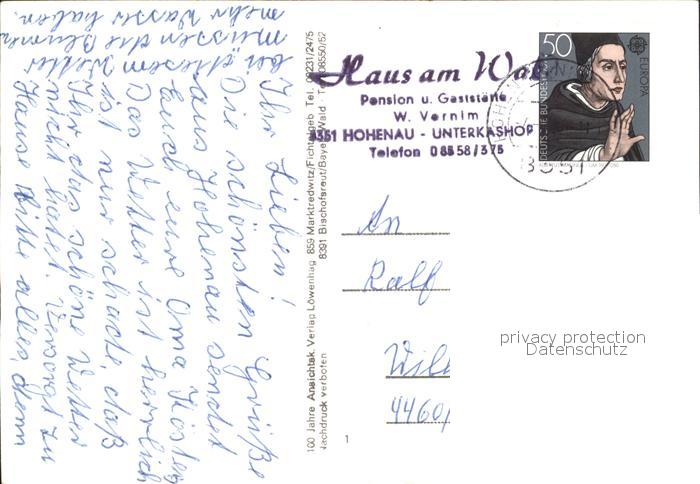 Ihr Lieben!
Die schönsten Grüße
aus Hohenau sendet
Euch eure Oma Köster
Das Wetter ist herrlich
ist nur schade, daß
Ihr das schöne Wetter
nicht habet. Versorgt zu
Hause bitte alles, denn
bei diesem Wetter
müssen die Blumen
mehr Wasser haben.
100 Jahre Ansichtsk. Verlag Löwenhag 859 Marktredwitz/Fichtelgeb Tel. 09231/2475
Nachdruck verboten 8391 Bischofsreut/Bayer Wald
1
Haus am Wald
Pension u. Gaststätte
W. Vernim
8351 HOHENAU - UNTERKASHOF
Telefon 08558/375
50
EUROPA
DEUTSCHE BUNDESPOST
8351
An
Ralf
4460
privacy protection
Datenschutz